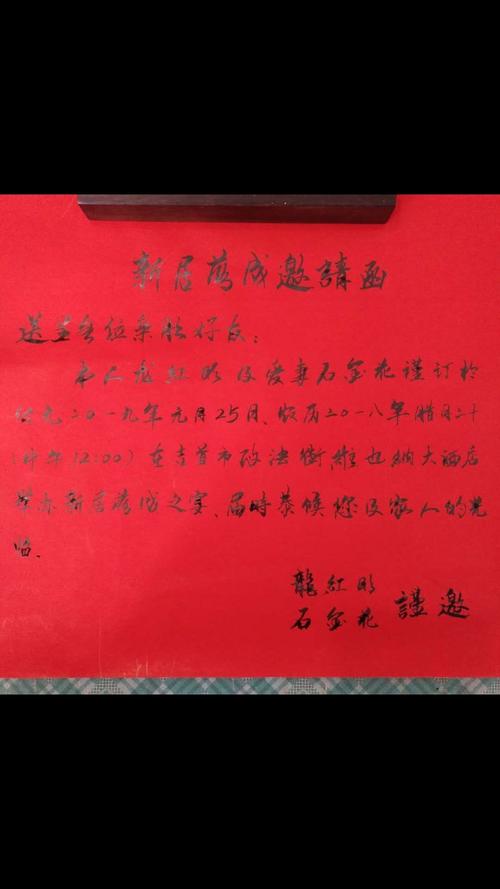 新居落成邀請函
送呈各位亲朋好友:
本人龙紅明及爱妻石金花謹订於
公元二0一九年元月25日、农历二0一八年腊月二十
(中午12:00)在吉首市政法街維也納大酒店
举办新居落成之宴、届時恭候您及家人的光
临、
龍紅明
石金花 謹邀